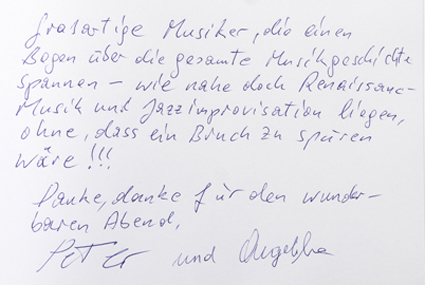 Großartige Musiker, die einen
Bogen über die gesamte Musikgeschichte
spannen – wie nahe doch Renaissanc-
Musik und Jazzimprovisation liegen,
ohne, dass ein Bruch zu spüren
wäre!!!
Danke, danke für den wunder-
baren Abend,
Peter und Angelika